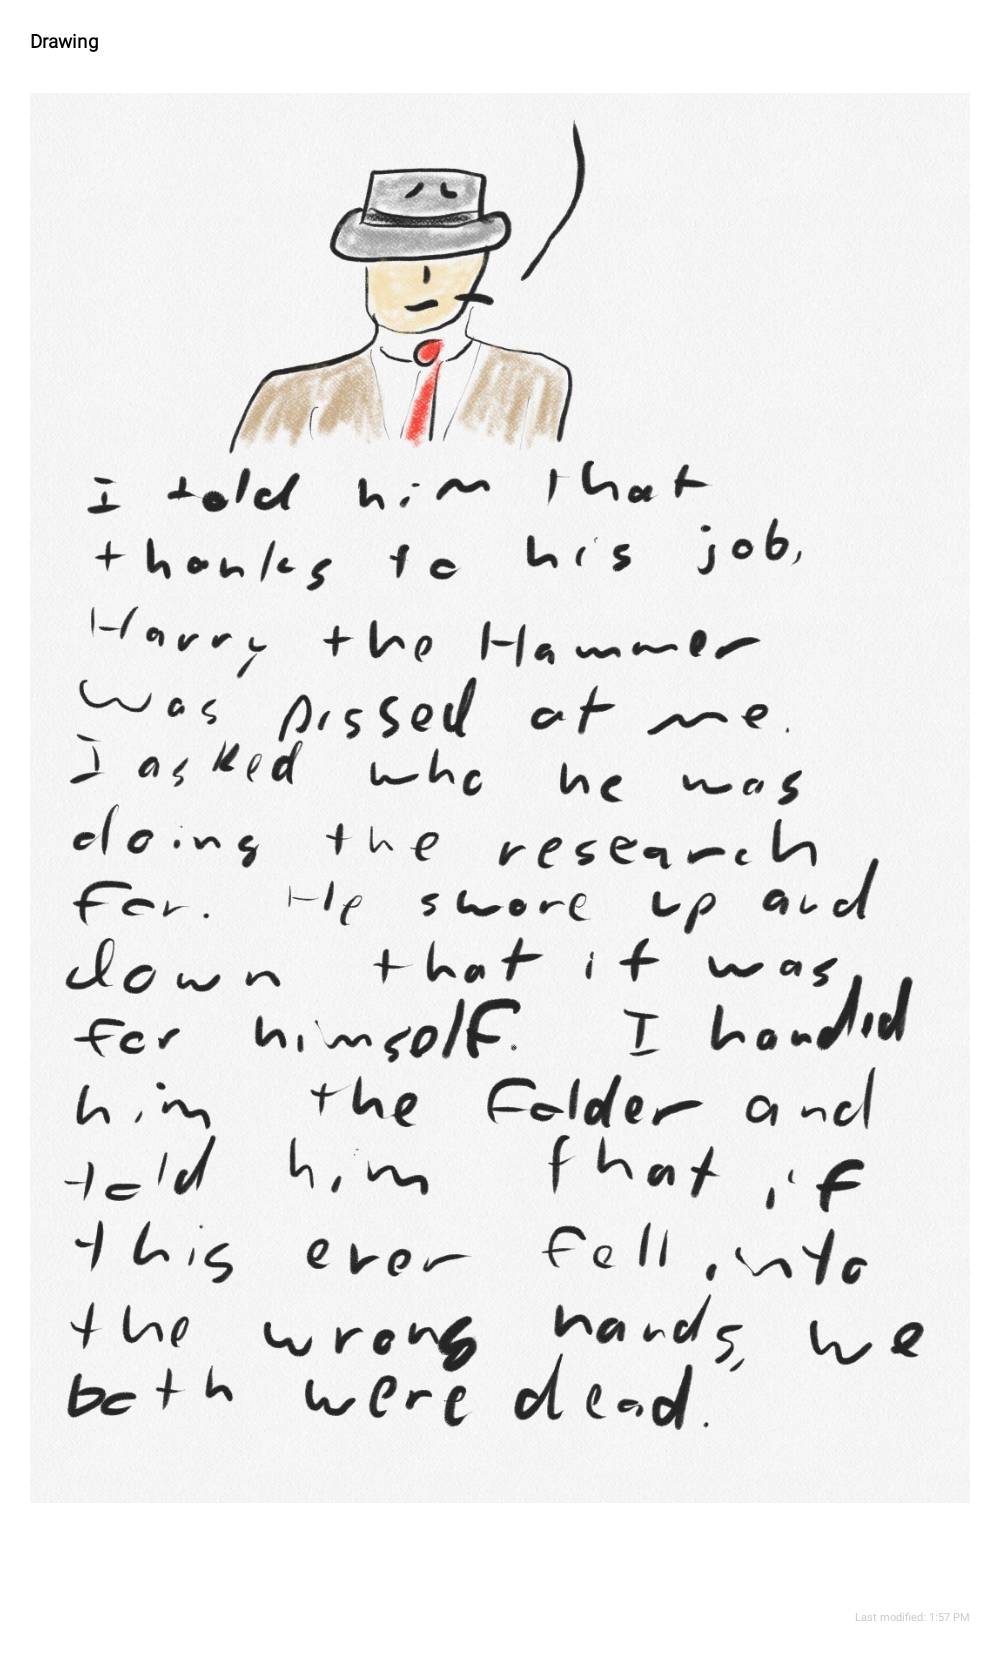 Drawing
I told him that
thanks to his job,
Harry the Hammer
was pissed at me.
I asked who he was
doing the research
for. He swore up and
down that it was
for himself. I handed
him the folder and
told him that if
this ever fell into
the wrong hands, we
both were dead.
Last modified: 1:57 PM